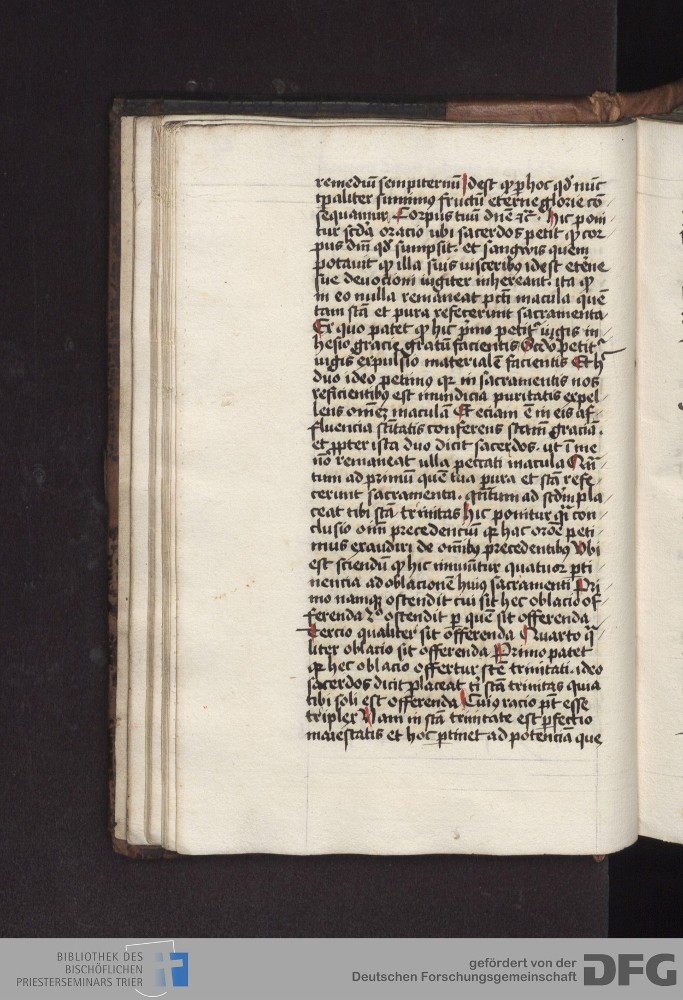 remediū sempiternū Idest qp p hoc qd' nūc
tpaliter sumimꝰ fructū eterne glorie cō
sequamur Corpus tuū dn̄e ꝛc̄. Hic poni
tur scd̄a oracio ubi sacerdos petit qp cor
pus dn̄i qd' sumpsit. et sangwis quem
potauit qp illa suis visceribꝰ idest eterne
sue deuocioni iugiter inhereant. ita qp
in eo nulla remaneat pcti macula quē
tam stā et pura refecerunt sacramenta
Ex quo patet qp hic pͥmo petitᷣ iugis in
hesio gracie gratū facientis Scd̄o petitᷣ
iugis expulsio materialē facientis Et h̄
duo ideo petimꝰ qꝛ in sacramentis nos
reficientibꝰ est mundicia puritatis expel
lens om̄ez maculā Et eciam ē in eis af
fluencia sc̄titatis conferens sc̄tam graciā.
et ꝓpter ista duo dicit sacerdos. ut ī me
nō remaneat ulla peccati macula Qn̄
tum ad primum quē tua pura et stā refe
cerunt sacramenta. qn̄tum ad scd̄m pla
ceat tibi stā trinitas Hic ponitur qͣi con
clusio oīm precedencium qꝛ hac orōe peti
mus exaudiri de om̄ibꝰ precedentibꝰ Vbi
est sciendū qp hic innuūtur quatuor pti
nencia ad oblacionē huiꝰ sacramenti Pri
mo namqꝫ ostendit cui sit hec oblacio of
ferenda 2ͦ ostendit p quē sit offerenda
Tercio qualiter sit offerenda Quarto qͣ
liter oblacio sit offerenda Primo patet
qꝛ hec oblacio offertur ste trinitati. ideo
sacerdos dicit placeat tͥ stā trinitas quia
tibi soli est offerenda Cuiꝰ racio pt̄ esse
triplex Nam in stā trinitate est pfectio
maiestatis et hoc ptinet ad potenciā que
BIBLIOTHEK DES
BISCHÖFLICHEN
PRIESTERSEMINARS TRIER
gefördert von der
Deutschen Forschungsgemeinschaft
DFG